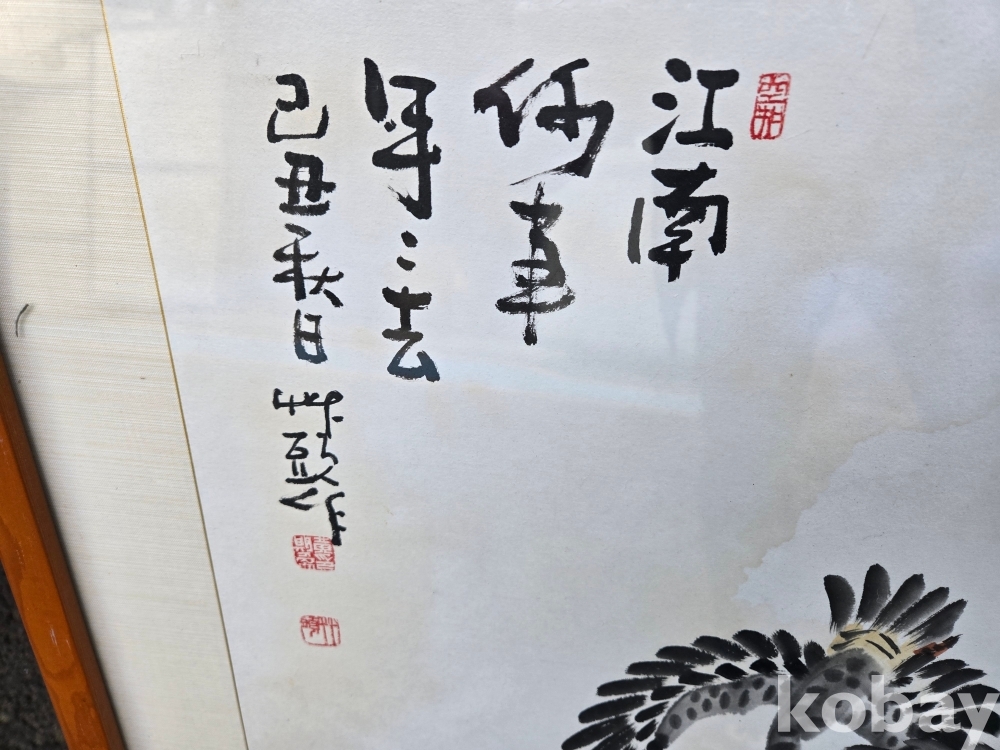 江南
何事
年〻去
己丑秋日
kobay